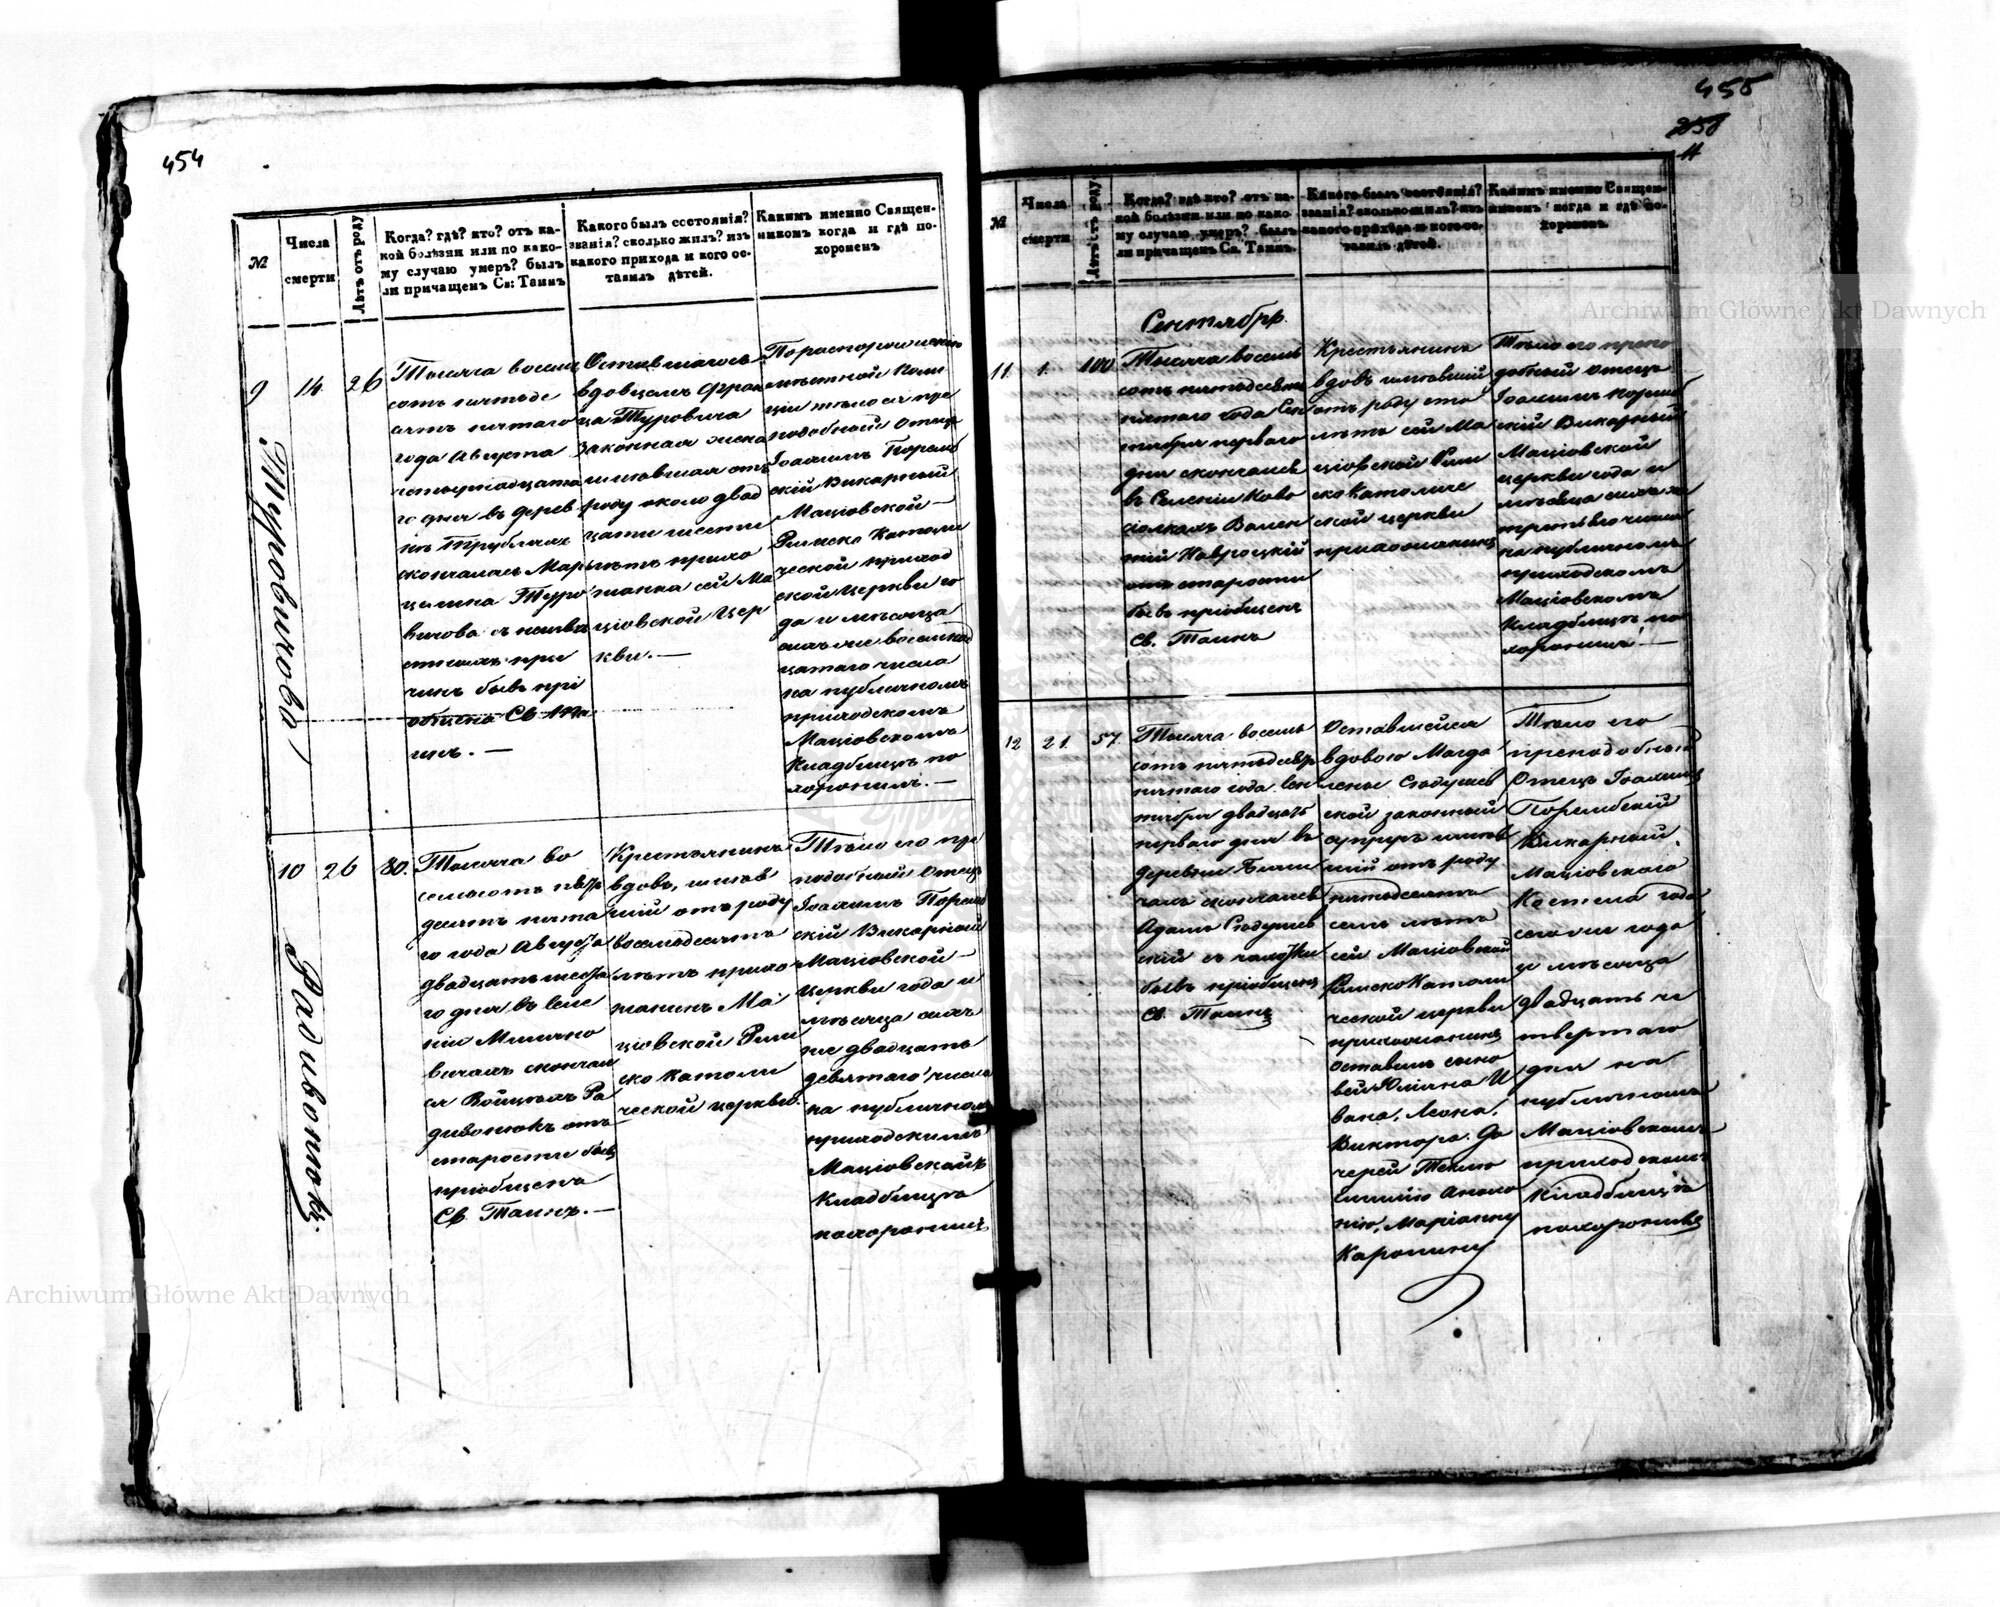 454
№
Числа
смерти
Лѣтъ отъ роду
Когда? гдѣ? кто? отъ ка-
кой болѣзни или по како-
му случаю умеръ? былъ
ли причащенъ Св: Таинъ
Какого былъ состоянія?
званія? сколько жилъ? изъ
какого прихода и кого ос-
тавилъ дѣтей.
Какимъ именно Священ-
никомъ когда и гдѣ по-
хороненъ
9
14
26
Туровичова
Тысяча восемь
сотъ пятьде
сятъ пятаго
года Августа
четырнадцата
го дня въ дерев
нѣ Трублях
скончалась Мар
целина Туро
вичова
причинѣ бывъ прі
общена Св. Та
инъ. —
Оставшагось
вдовцемъ Фран
ца Туровича
законная жена
имѣвшая отъ
роду около двад
цати шести
лѣтъ прихо
жанка сей Ма
ціовской Цер
кви. —
По распоряженію
земтной Поли
ціи тѣло ея пре
подобный Отецъ
Іоахимъ Поремб
скій Викарный
Маціовской —
Римско Католи
ческой приход
ской Церкви го
да и мѣсяца
сихъ же восемнад
цатаго числа
на публичномъ
приходскомъ
Маціовскомъ
Кладбищѣ по
хоронилъ. —
10
26
80.
Радивонюкъ.
Тысяча во
семьсотъ пять
десятъ пята
го года Августа
двадцать шеста
го дня въ селе
ніи Миляно
вичахъ скончал
ся Войцехъ Ра
дивонюкъ отъ
старости бывъ
пріобщенъ
Св. Таинъ. —
Крестьянинъ
вдовъ, имѣв
шій отъ роду
восемьдесятъ
лѣтъ прихо
жанинъ Ма
ціовской Рим
ско Католи
ческой церкви.
Тѣло его пре
подобный Отецъ
Іоахимъ Поремб
скій Викарный
Маціовской —
Церкви года и
мѣсяца сихъ
же двадцать
девятаго числа
на публичномъ
приходскимъ
Маціовской
Кладбищѣ
похоронилъ
455
258
14
№
Числа
смерти
Лѣтъ отъ роду.
Когда? гдѣ? кто? отъ ка-
кой болѣзни или по како-
му случаю умеръ? былъ
ли причащенъ Св. Таинъ.
Какого былъ состоянія?
званія? сколько жилъ? изъ
какого прихода и кого ос-
тавилъ дѣтей.
Какимъ именно Священ-
никомъ когда и гдѣ по-
хороненъ.
Сентябрь.
11
1
100
Тысяча восемь
сотъ пятьдесятъ
пятаго года Сен
тября перваго
дня скончался
въ Селеніи Ково
Вален
тій Навроцкій
отъ старости
бывъ пріобщенъ
Св. Таинъ
Крестьянинъ
вдовъ имѣвшій
отъ роду сто
лѣтъ сей Ма
ціовской Рим
ско Католиче
ской церкви
прихожанинъ
Тѣло его препо
добный Отецъ
Іоахимъ Поремб
скій Викарный
Маціовской
церкви года и
мѣсяца сихъ же
третьяго числа
на публичномъ
приходскомъ
Маціовскомъ
Кладбищѣ по
хоронилъ. —
12
21
57
Тысяча восемь
сотъ пятьдесятъ
пятаго года Сен
тября двадцать
перваго дня въ
деревни
скончался
Адамъ
скій съ чахотки
бывъ пріобщенъ
Св. Таинъ
Оставшейся
вдовою Магда
лены
ской законный
супругъ имѣв
шій отъ роду
пятьдесятъ
семь лѣтъ
сей Маціовской
Римско Католи
ческой церкви
прихожанинъ
оставилъ сыно
вей Юліана И
вана, Леона,
Виктора. До
черей Теклю
Емилію Аполо
нію, Маріанну
Каролину
Тѣло его
преподобный
Отецъ Іоахимъ
Порембскій
Викарный
Маціовского
Костела года
сего же года
и мѣсяца
двадцать че
твертаго
дня на
публичномъ
Маціовскомъ
приходскомъ
кладбищѣ
похоронилъ
Archiwum Główne Akt Dawnych
Archiwum Główne Akt Dawnych